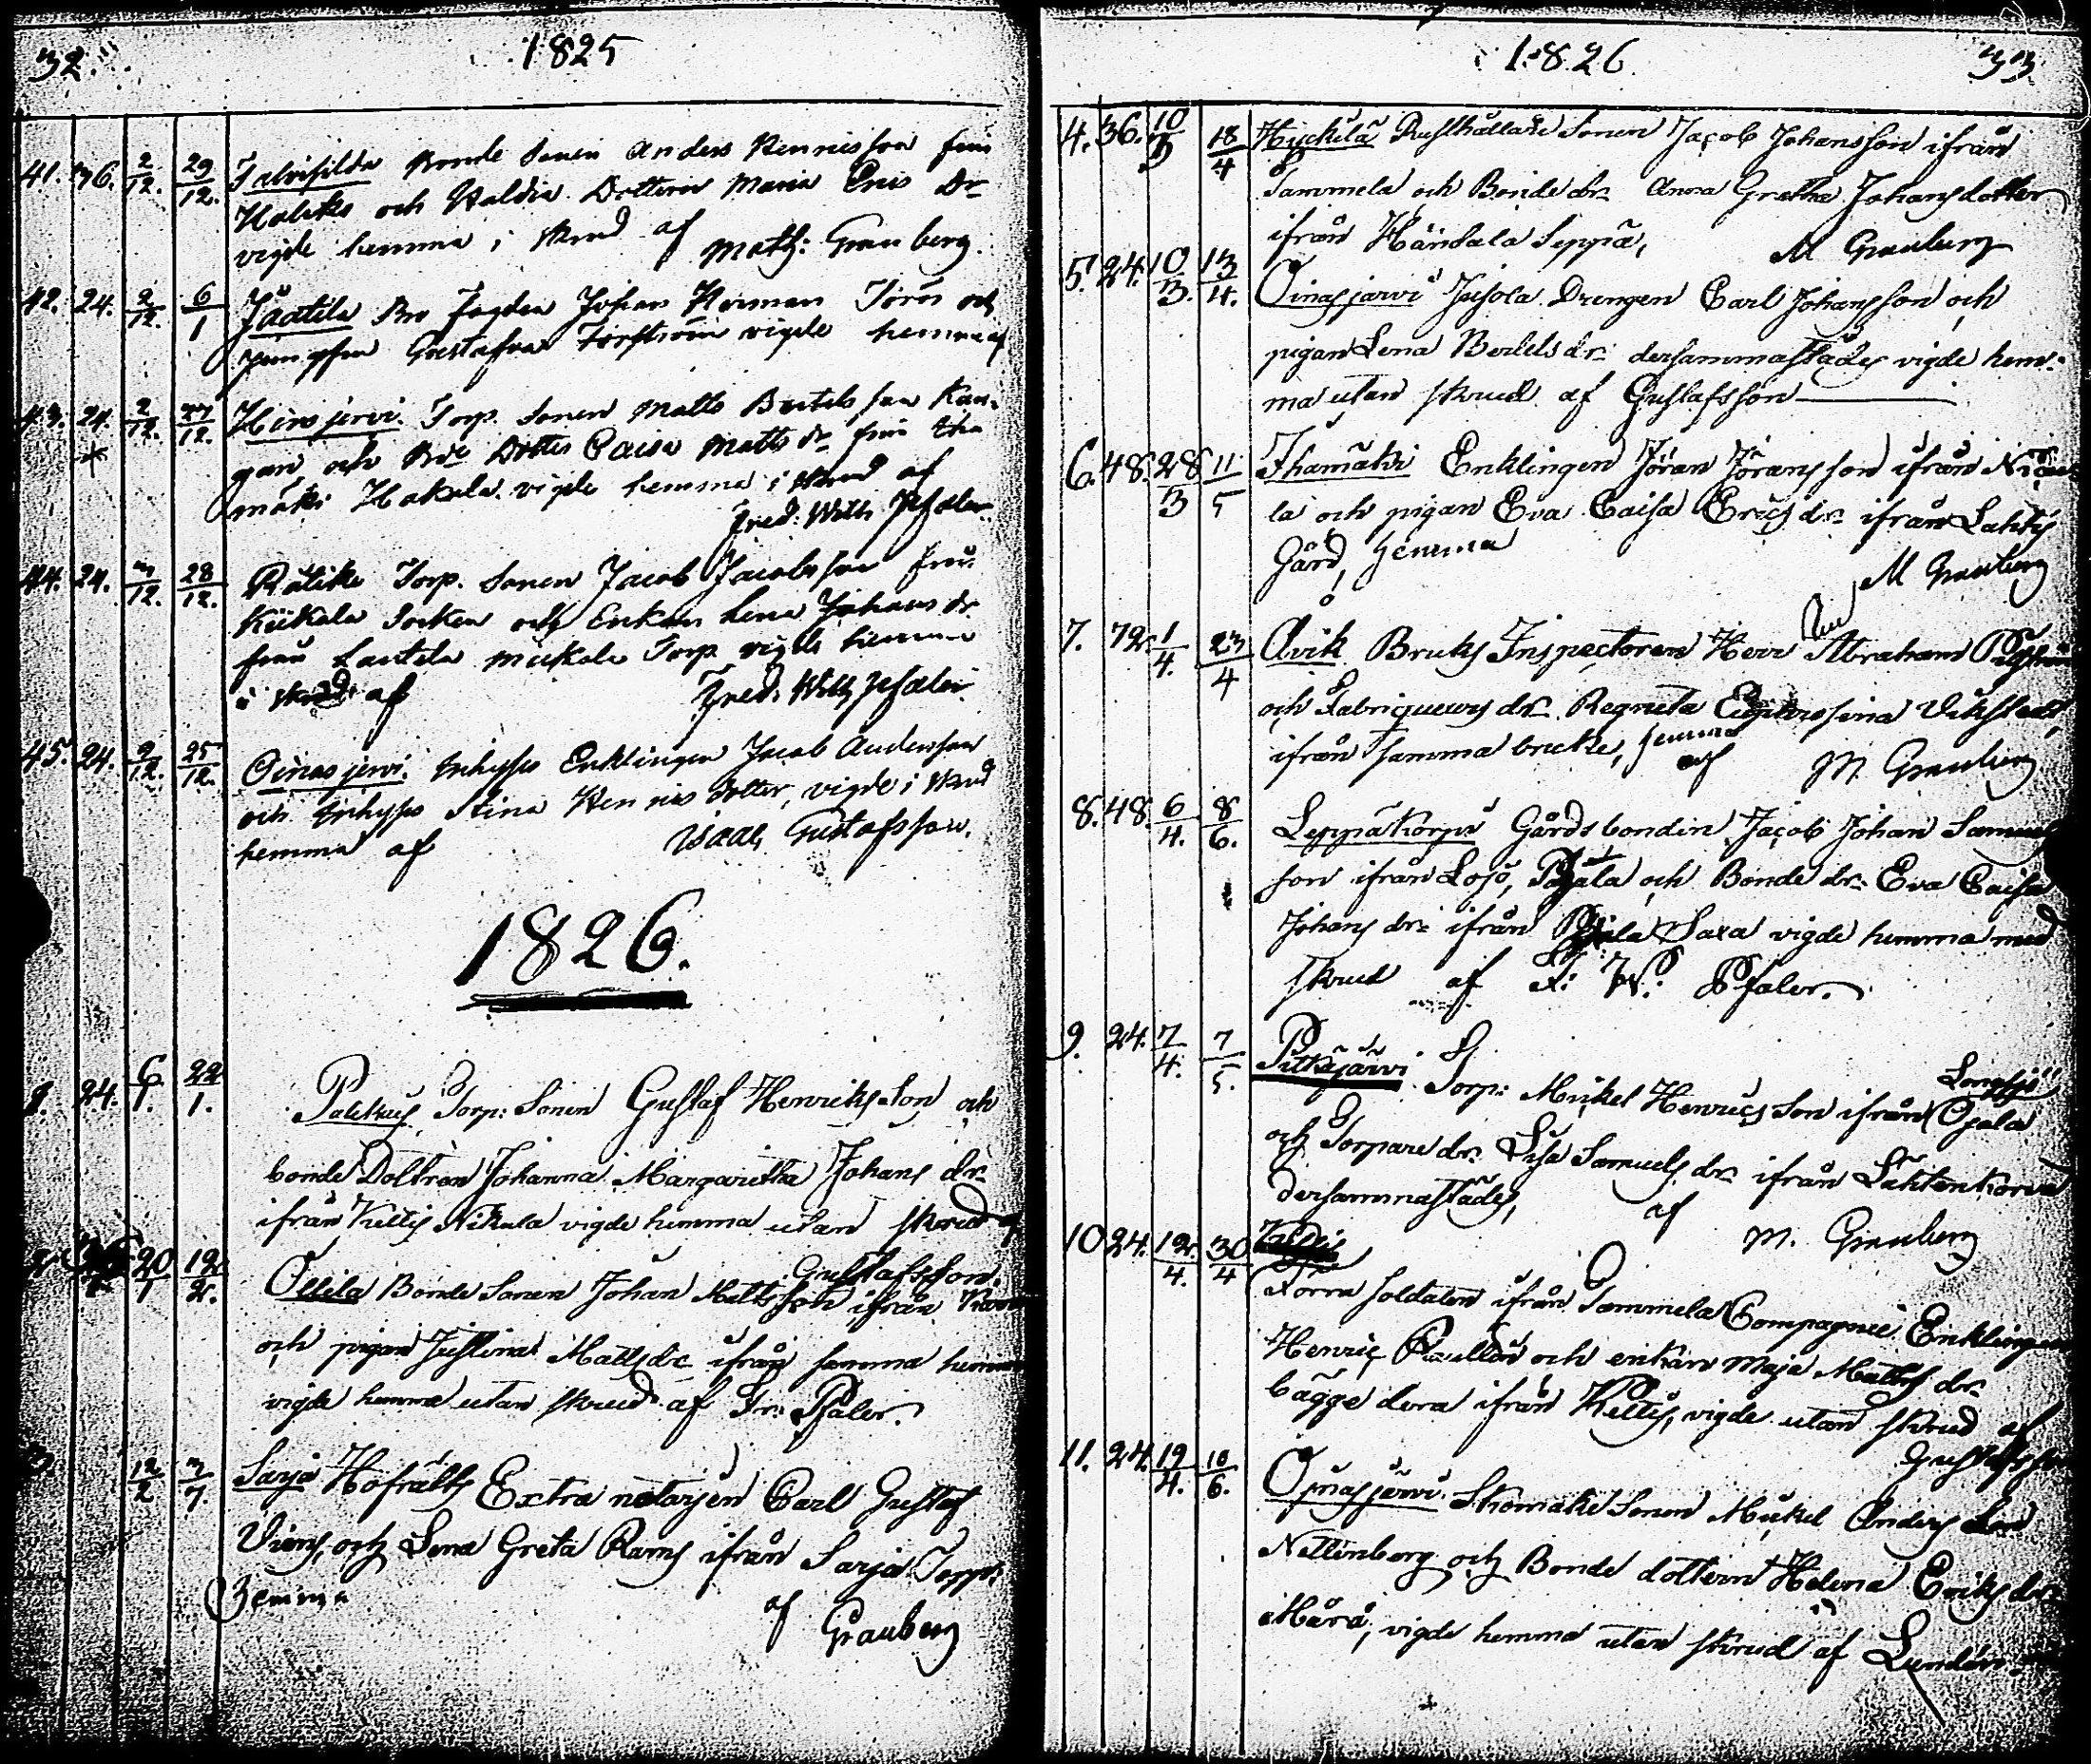 32. 1825
41. 36. 2/12. 29/12. Talvisilda Bonde Sonen Anders Henricsson från
Haliko och Dottern Maria Eric Dr
vigde hemma i skrud af Math: Grauberg.
42. 24. 2/12. 6/1 Jäätila Johan Herman och
Jungfru Gustafva vigde hemma af
43. 24. 2/12. 27/12. Hirsjervi. Torp. Sonen Matts Bertils son Kan-
gan, och Dotter Caisa Matts dr från Iha
mäki Hakala. vigde hemma i skrud af
Fred: Wilh Pfaler.
44. 24. 3/12. 28/12. Torp. Sonen Jacob Jacobsson från
Kiikala Socken och Enkan Lena Johans dr
från Lautela Torp vigde hemma
i skrud af Fred. Wilh Pfaler
45. 24. 9/12. 25/12. Oinasjervi. Inhyses Enklingen Jacob Andersson
och Inhyses Stina Henrics dotter, vigde i skrud
hemma af Isaac Gustafsson.
1826.
1. 24. 6/1. 22/1. Torp: Sonen Gustaf Henriks Son och
bonde Dottren Johanna Margaretha Johans dr.
ifrån Kettis Nikula vigde hemma utan skrud af
Gustafsson.
20/1 12/2. Ollila Bonde Sonen Johan Mattsson ifrån
och pigan Justina Mattsdr ifrån samma hemman
vigde hemma utan skrud af Fr: Pfaler.
3. 12/2 3/7. Sarja Hofrätts Extra notarien Carl Gustaf
och Lena Greta Rams ifrån Sarja
Hemma af Grauberg
1826. 33
4. 36. 10/3 18/4 Hyckilä Rusthållare Sonen Jacob Johansson ifrån
Sammela och Bonde dr. Anna Gretha Johansdotter
ifrån Hänsala Seppä, M Grauberg
5. 24. 10/3. 13/4. Oinasjärvi Drengen Carl Johansson och
pigan Lena Bertels dr: dersammastädes vigde hem-
ma utan skrud af Gustafsson
6. 48. 28/3 11/5 Ihamäki Enklingen Jöran Jöransson ifrån
la och pigan Eva Caisa Erics dr. ifrån Lahtis
Gård, hemma M Grauberg
7. 72. 1/4. 23/4 Åvik Bruks Inspectoren Herr Abraham
och Fabriqueurs dr. Regneta
ifrån samma bruke, hemma af M. Grauberg
8. 48. 6/4. 8/6. Leppäkorpi Gårds bonden Jacob Johan Samuels
son ifrån Lojo, och Bonde dr: Eva Caisa
Johans dr. ifrån Saxa vigde hemma med
skrud af F: W: Pfaler.
9. 24. 7/4. 7/5. Pitkäjärvi Torp: Mickel Henrics Son ifrån Långsjö
Ojala
och Torpare dr. Lisa Samuels dr. ifrån Lähtenkorva
dersammastädes, af M. Grauberg
10 24. 12/4. 30/4 Kettis
Förra soldaten ifrån Tammela Compagnie Enklingen
Henric och enkan Maja Matts dr.
bägge dera ifrån Kettis, vigde utan skrud af
Gustafsson
11. 24. 19/4. 18/6. Ojnasjärvi. Skomakare Sonen Mickel Anders Son
Nettenberg och Bonde dottern Helena Eriks dr.
vigde hemma utan skrud af Lundén